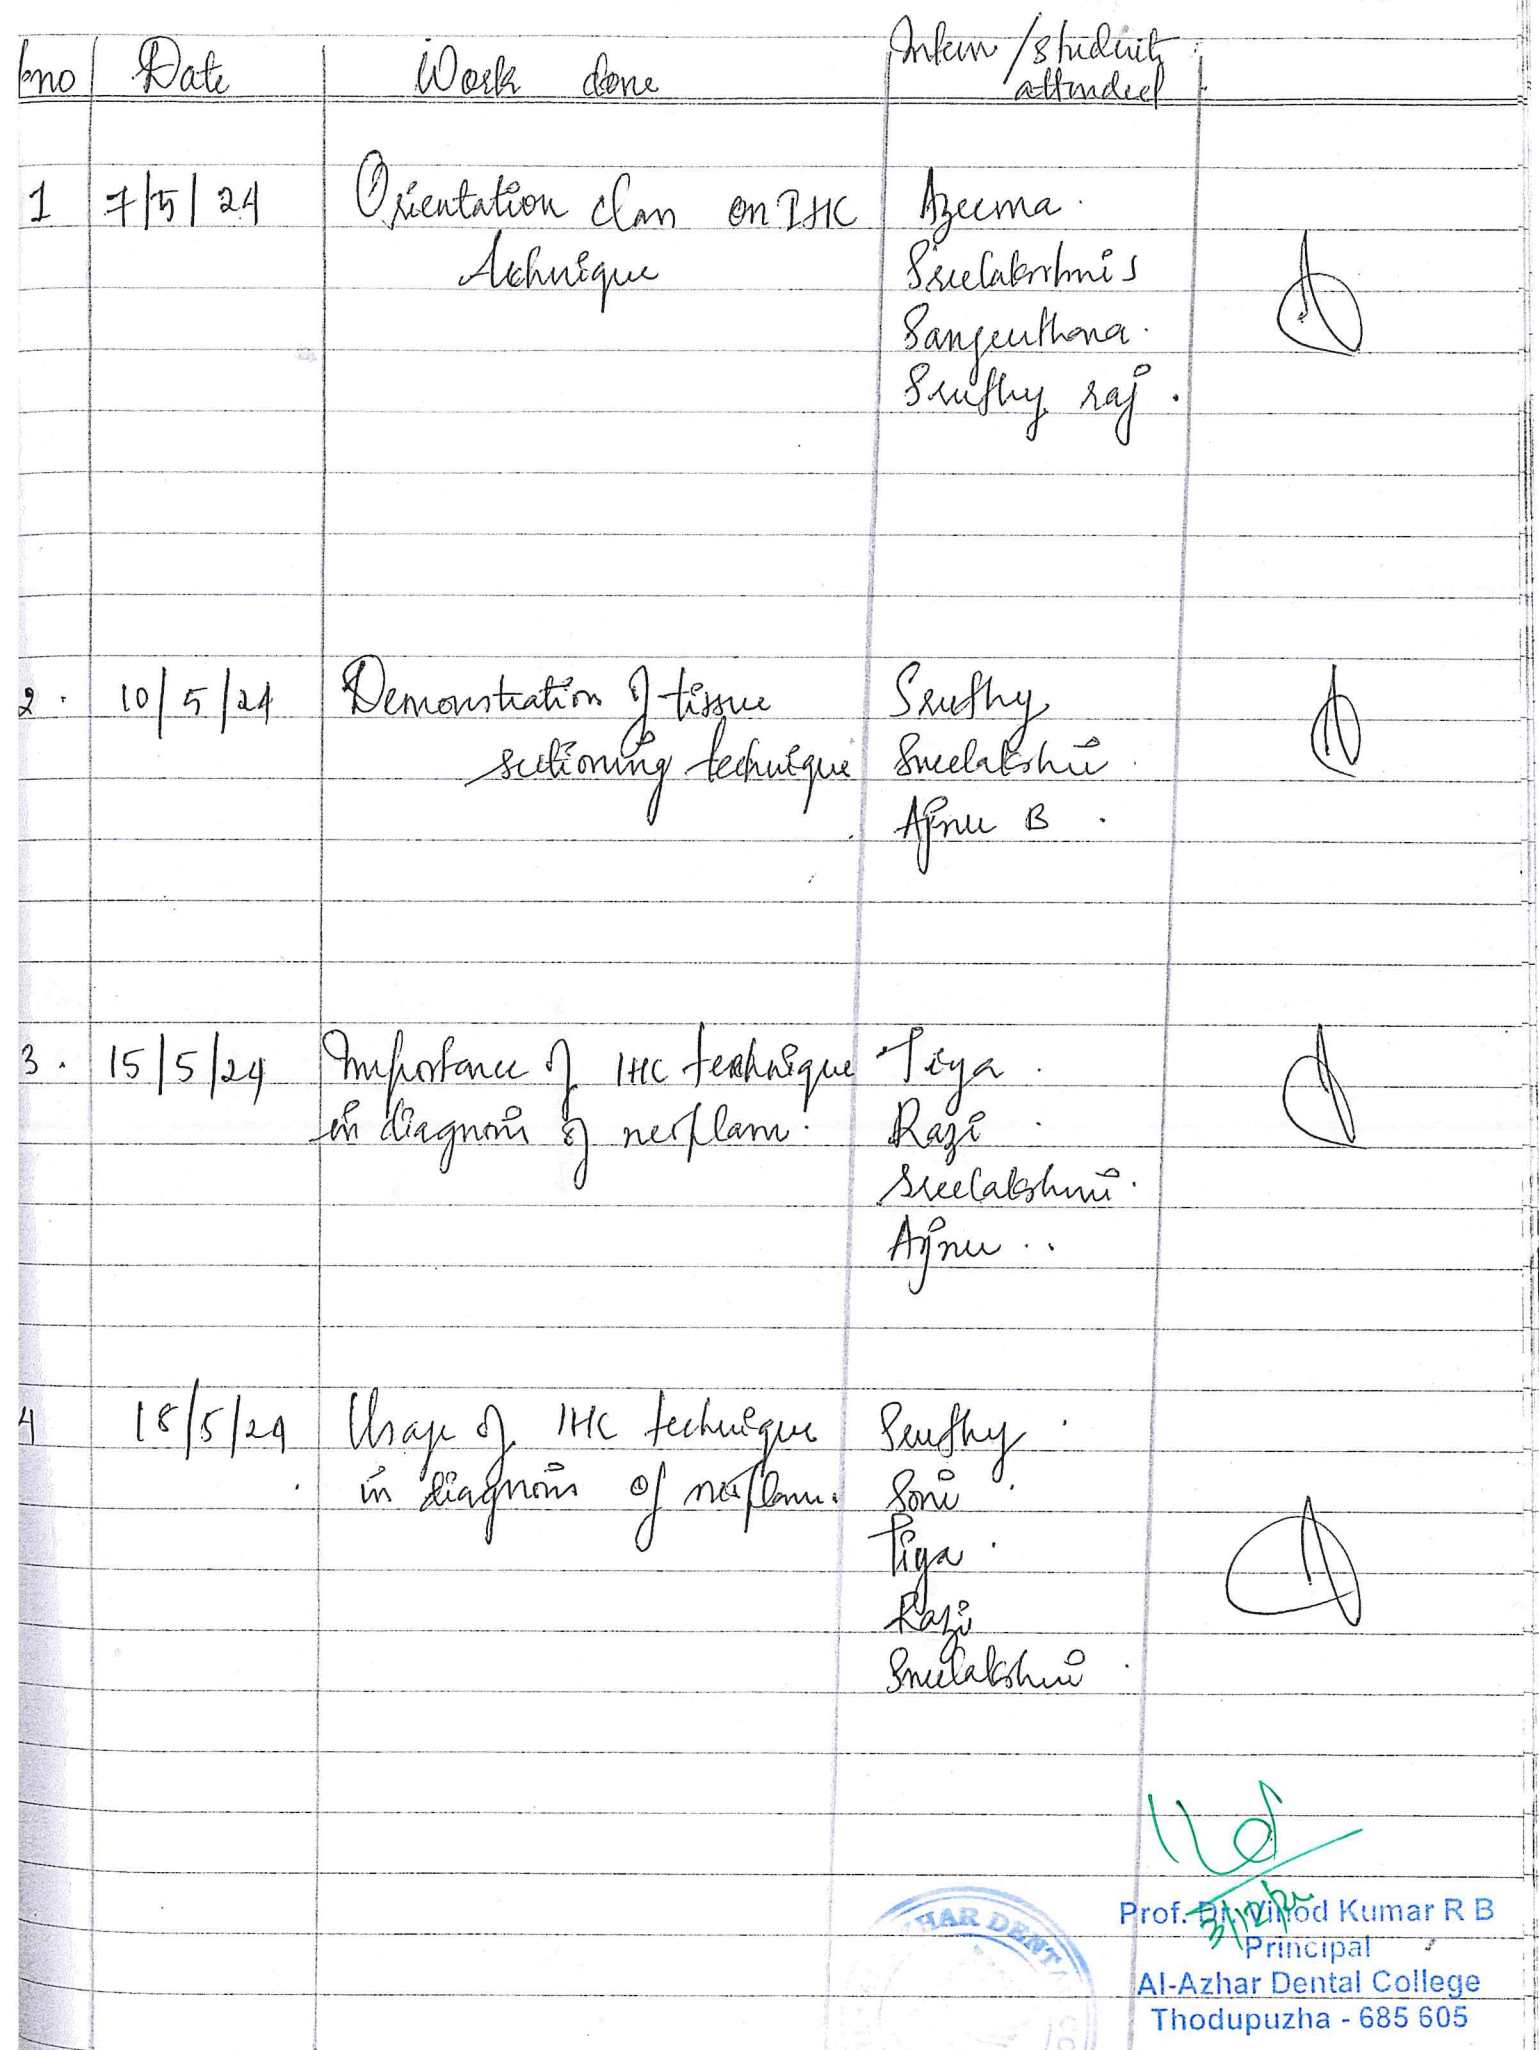 Date Work done Intern / students
attended
1 7/5/24 Orientation class on IHC Azeema.
technique Sreelakshmi S
Sangeerthana.
Sruthy raj.
2. 10/5/24 Demonstration of tissue Sruthy
sectioning technique Sreelakshmi.
B.
3. 15/5/24 Importance of IHC technique Tiya.
in diagnosis of neoplasm. Razi.
Sreelakshmi.
4 18/5/24 Usage of IHC technique Sruthy.
in diagnosis of neoplasm. Soni.
Tiya.
Razi
Sreelakshmi.
Prof. Dr. Vinod Kumar R B
Principal
Al-Azhar Dental College
Thodupuzha - 685 605
HAR DENTA